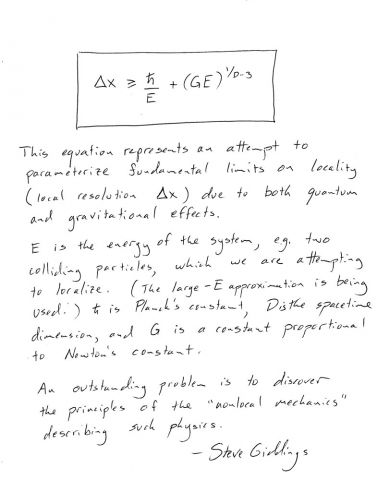 Δx ≥ ħ/E + (GE)^1/D-3
This equation represents an attempt to
parameterize fundamental limits on locality
(local resolution Δx) due to both quantum
and gravitational effects.
E is the energy of the system, eg. two
colliding particles, which we are attempting
to localize. (The large-E approximation is being
used.) ħ is Planck's constant, D is the spacetime
dimension, and G is a constant proportional
to Newton's constant.
An outstanding problem is to discover
the principles of the "nonlocal mechanics"
describing such physics.
— Steve Giddings